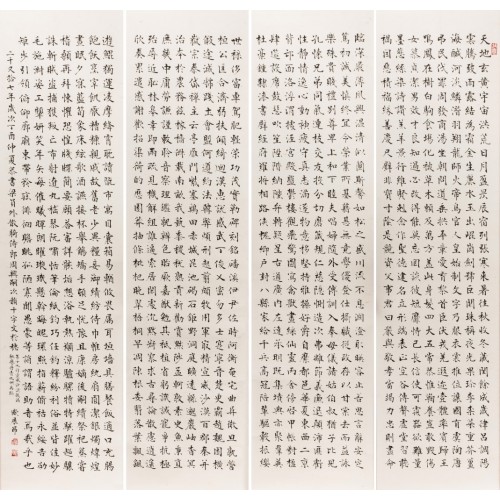 天地玄黃宇宙洪荒日月盈昃辰宿列張寒來暑往秋收冬藏閏餘成歲律呂調陽
雲騰致雨露結為霜金生麗水玉出崑岡劍號巨闕珠稱夜光果珍李柰菜重芥薑
海鹹河淡鱗潛羽翔龍師火帝鳥官人皇始制文字乃服衣裳推位讓國有虞陶唐
弔民伐罪周發殷湯坐朝問道垂拱平章愛育黎首臣伏戎羌遐邇壹體率賓歸王
鳴鳳在樹白駒食場化被草木賴及萬方蓋此身髮四大五常恭惟鞠養豈敢毀傷
女慕貞潔男效才良知過必改得能莫忘罔談彼短靡恃己長信使可覆器欲難量
墨悲絲染詩讚羔羊景行維賢克念作聖德建名立形端表正空谷傳聲虛堂習聽
禍因惡積福緣善慶尺璧非寶寸陰是競資父事君曰嚴與敬孝當竭力忠則盡命
臨深履薄夙興溫凊似蘭斯馨如松之盛川流不息淵澄取映容止若思言辭安定
篤初誠美慎終宜令榮業所基籍甚無竟學優登仕攝職從政存以甘棠去而益詠
樂殊貴賤禮別尊卑上和下睦夫唱婦隨外受傅訓入奉母儀諸姑伯叔猶子比兒
孔懷兄弟同氣連枝交友投分切磨箴規仁慈隱惻造次弗離節義廉退顛沛匪虧
性靜情逸心動神疲守真志滿逐物意移堅持雅操好爵自縻都邑華夏東西二京
背邙面洛浮渭據涇宮殿盤鬱樓觀飛驚圖寫禽獸畫彩仙靈丙舍傍啟甲帳對楹
肆筵設席鼓瑟吹笙升階納陛弁轉疑星右通廣內左達承明既集墳典亦聚群英
杜稿鍾隸漆書壁經府羅將相路俠槐卿戶封八縣家給千兵高冠陪輦驅轂振纓
世祿侈富車駕肥輕策功茂實勒碑刻銘磻溪伊尹佐時阿衡奄宅曲阜微旦孰營
桓公匡合濟弱扶傾綺迴漢惠說感武丁俊乂密勿多士寔寧晉楚更霸趙魏困橫
假途滅虢踐土會盟何遵約法韓弊煩刑起翦頗牧用軍最精宣威沙漠百郡秦并
嶽宗泰岱禪主云亭雁門紫塞雞田赤城昆池碣石鉅野洞庭曠遠綿邈巖岫杳冥
治本於農務茲稼穡俶載南畝我藝黍稷稅熟貢新勸賞黜陟孟軻敦素史魚秉直
庶幾中庸勞謙謹敕聆音察理鑑貌辨色貽厥嘉猷勉其祗植省躬譏誡寵增抗極
殆辱近恥林皋幸即兩疏見機解組誰逼索居閒處沉默寂寥求古尋論散慮逍遙
欣奏累遣慼謝歡招渠荷的歷園莽抽條枇杷晚翠梧桐早凋陳根委翳落葉飄颻
遊鯤獨運凌摩絳霄耽讀翫市寓目囊箱易輶攸畏屬耳垣牆具膳餐飯適口充腸
飽飫烹宰飢厭糟糠親戚故舊老少異糧妾御績紡侍巾帷房紈扇圓潔銀燭煒煌
晝眠夕寐藍筍象床絃歌酒讌接杯舉觴矯手頓足悅豫且康嫡後嗣續祭祀烝嘗
稽顙再拜悚懼恐惶牋牒簡要顧答審詳骸垢想浴執熱願涼驢騾犢特駭躍超驤
誅斬賊盜捕獲叛亡布射遼丸嵇琴阮嘯恬筆倫紙鈞巧任釣釋紛利俗並皆佳妙
毛施淑姿工顰妍笑年矢每催曦暉朗曜璇璣懸斡晦魄環照指薪修祜永綏吉劭
矩步引領俯仰廊廟束帶矜莊徘徊瞻眺孤陋寡聞愚蒙等誚謂語助者焉哉乎也
二千又拾七年歲次丁酉仲夏恭書梁員外散騎侍郎周興嗣次韻千字文